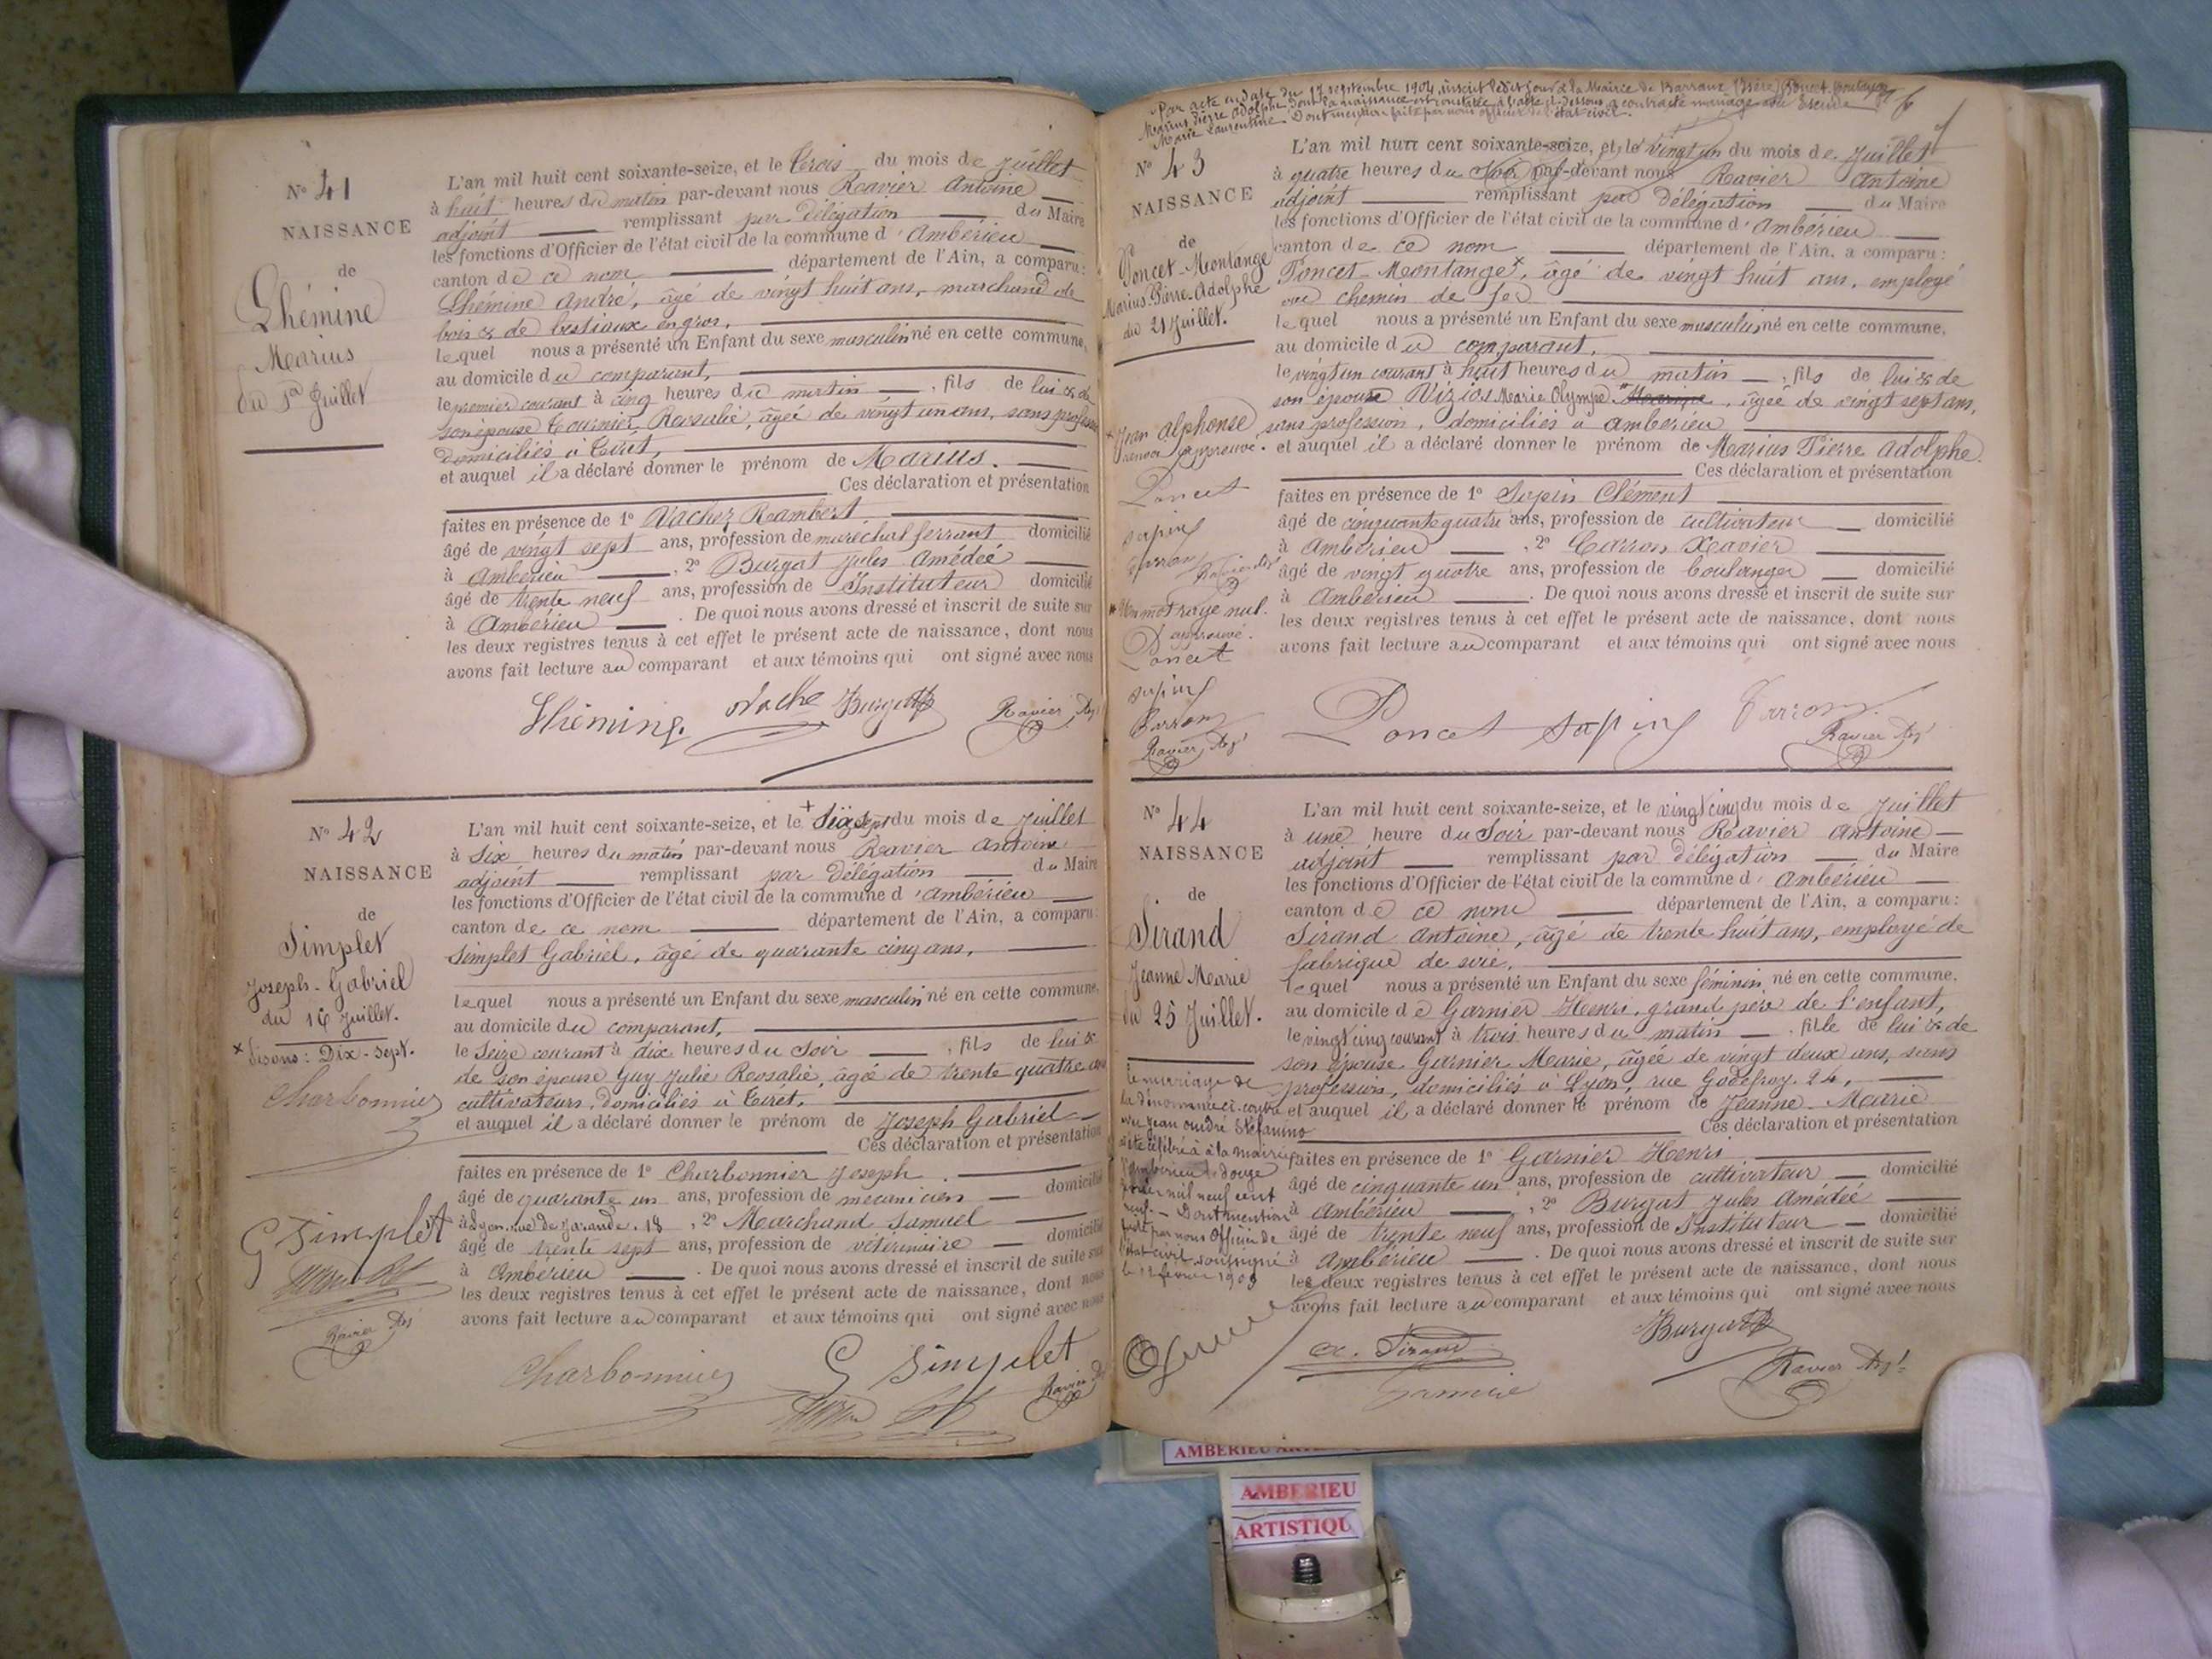 N° 41
NAISSANCE
de
Lhémine
Marius
du 1er Juillet
L'an mil huit cent soixante-seize, et le trois du mois de Juillet
à huit heures du matin par-devant nous Ravier Antoine
adjoint remplissant par délégation du Maire
les fonctions d'Officier de l'état civil de la commune d'Ambérieu
canton de ce nom département de l'Ain, a comparu:
Lhémine André, âgé de vingt huit ans, marchand de
bois & de bestiaux en gros,
lequel nous a présenté un Enfant du sexe masculin né en cette commune,
au domicile du comparant,
le premier courant à cinq heures du matin, fils de lui & de
son épouse Tournier Rosalie, âgée de vingt un ans, sans profession
domiciliés à Tiret,
et auquel il a déclaré donner le prénom de Marius.
Ces déclaration et présentation
faites en présence de 1° Vacher Rambert
âgé de vingt sept ans, profession de maréchal ferrant domicilié
à Ambérieu, 2° Burgat Jules Amédée
âgé de trente neuf ans, profession de Instituteur domicilié
à Ambérieu. De quoi nous avons dressé et inscrit de suite sur
les deux registres tenus à cet effet le présent acte de naissance, dont nous
avons fait lecture au comparant et aux témoins qui ont signé avec nous
Lhémine Vache Burgat Ravier Adjt
N° 42
NAISSANCE
de
Simplet
Joseph-Gabriel
du 16 Juillet.
× Lisons: Dix-Sept.
Charbonnier
G Simplet
Ravier Adjt
L'an mil huit cent soixante-seize, et le + du mois de Juillet
à six heures du matin par-devant nous Ravier Antoine
adjoint remplissant par délégation du Maire
les fonctions d'Officier de l'état civil de la commune d'Ambérieu
canton de ce nom département de l'Ain, a comparu:
Simplet Gabriel, âgé de quarante cinq ans,
lequel nous a présenté un Enfant du sexe masculin né en cette commune,
au domicile du comparant,
le Seize courant à dix heures du Soir, fils de lui &
de son épouse Guy Julie Rosalie, âgée de trente quatre ans
cultivateurs, domiciliés à Tiret,
et auquel il a déclaré donner le prénom de Joseph Gabriel
Ces déclaration et présentation
faites en présence de 1° Charbonnier Joseph
âgé de quarante un ans, profession de mécanicien domicilié
à Lyon, rue de Jarande, 18, 2° Marchand Samuel
âgé de trente sept ans, profession de vétérinaire domicilié
à Ambérieu. De quoi nous avons dressé et inscrit de suite sur
les deux registres tenus à cet effet le présent acte de naissance, dont nous
avons fait lecture au comparant et aux témoins qui ont signé avec nous
Charbonnier G Simplet Ravier
Par acte en date du 17 septembre 1904, inscrit ledit jour à la Mairie de Barraux (Isère) Poncet-Montange
Marius Pierre Adolphe dont la naissance est constatée à l'acte ci-dessous a contracté mariage avec
Marie Laurentine. Dont mention faite par nous officier de l'état civil.
N° 43
NAISSANCE
de
Poncet-Montange
Marius-Pierre-Adolphe
du 21 Juillet.
× Jean Alphonse
renvoi approuvé.
Poncet
Sapin
Carron
Ravier Adjt
* Un mot rayé nul.
approuvé.
Poncet
Sapin
Carron
Ravier, Adjt
L'an mil huit cent soixante-seize, et le vingt un du mois de Juillet
à quatre heures du Soir par-devant nous Ravier Antoine
adjoint remplissant par délégation du Maire
les fonctions d'Officier de l'état civil de la commune d'Ambérieu
canton de ce nom département de l'Ain, a comparu:
Poncet-Montange ×, âgé de vingt huit ans, employé
au chemin de fer
lequel nous a présenté un Enfant du sexe masculin né en cette commune,
au domicile du comparant,
le vingt un courant à huit heures du matin, fils de lui & de
son épouse Vizioz Marie Olympe, âgée de vingt sept ans,
sans profession, domiciliés à Ambérieu
et auquel il a déclaré donner le prénom de Marius Pierre Adolphe.
Ces déclaration et présentation
faites en présence de 1° Sapin Clément
âgé de cinquante quatre ans, profession de cultivateur domicilié
à Ambérieu, 2° Carron Xavier
âgé de vingt quatre ans, profession de boulanger domicilié
à Ambérieu. De quoi nous avons dressé et inscrit de suite sur
les deux registres tenus à cet effet le présent acte de naissance, dont nous
avons fait lecture au comparant et aux témoins qui ont signé avec nous
Poncet Sapin Carron
Ravier Adjt
N° 44
NAISSANCE
de
Sirand
Jeanne Marie
du 25 Juillet.
Le mariage de
la dénommée ci-contre
avec Jean André Stefanino
a été célébré à la mairie
d'Ambérieu le douze
février mil neuf cent
neuf. — Dont mention
faite par nous Officier de
l'état civil soussigné
le 12 février 1909
L'an mil huit cent soixante-seize, et le vingt cinq du mois de Juillet
à une heure du Soir par-devant nous Ravier Antoine
adjoint remplissant par délégation du Maire
les fonctions d'Officier de l'état civil de la commune d'Ambérieu
canton de ce nom département de l'Ain, a comparu:
Sirand Antoine, âgé de trente huit ans, employé de
fabrique de soie,
lequel nous a présenté un Enfant du sexe féminin né en cette commune.
au domicile de Garnier Henri, grand père de l'enfant,
le vingt cinq courant à trois heures du matin, fille de lui & de
son épouse Garnier Marie, âgée de vingt deux ans, sans
profession, domiciliés à Lyon, rue Godefroy, 24,
et auquel il a déclaré donner le prénom de Jeanne-Marie
Ces déclaration et présentation
faites en présence de 1° Garnier Henri
âgé de cinquante un ans, profession de cultivateur domicilié
à Ambérieu, 2° Burgat Jules Amédée
âgé de trente neuf ans, profession de Instituteur domicilié
à Ambérieu. De quoi nous avons dressé et inscrit de suite sur
les deux registres tenus à cet effet le présent acte de naissance, dont nous
avons fait lecture au comparant et aux témoins qui ont signé avec nous
A. Sirand Burgat
Garnier Ravier Adjt
AMBERIEU
AMBERIEU
ARTISTIQU